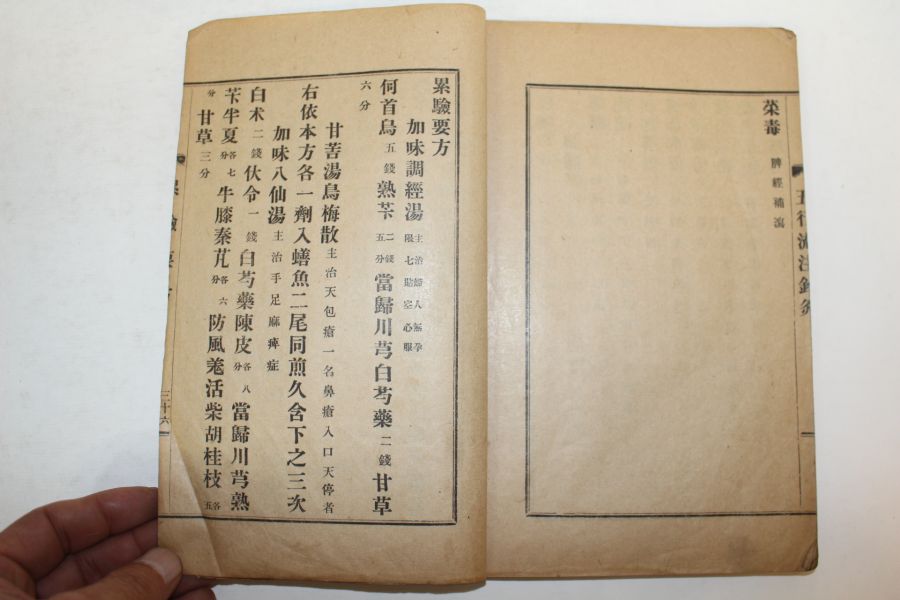 榮毒 脾經補瀉
五行流注針灸
累驗要方
加味調經湯 主治婦人無孕限七貼空心服
何首烏五錢熟芐二錢五分當歸川芎白芍藥二錢甘草
六分
甘苦湯烏梅散主治天包瘡一名鼻瘡入口天停者
右依本方各一劑入鱔魚二尾同煎久含下之三次
加味八仙湯主治手足麻痺症
白朮二錢伏令一錢白芍藥陳皮各八分當歸川芎熟
芐半夏各七分牛膝秦芃各六分防風羗活柴胡桂枝各五
分甘草三分
累驗要方 三十六